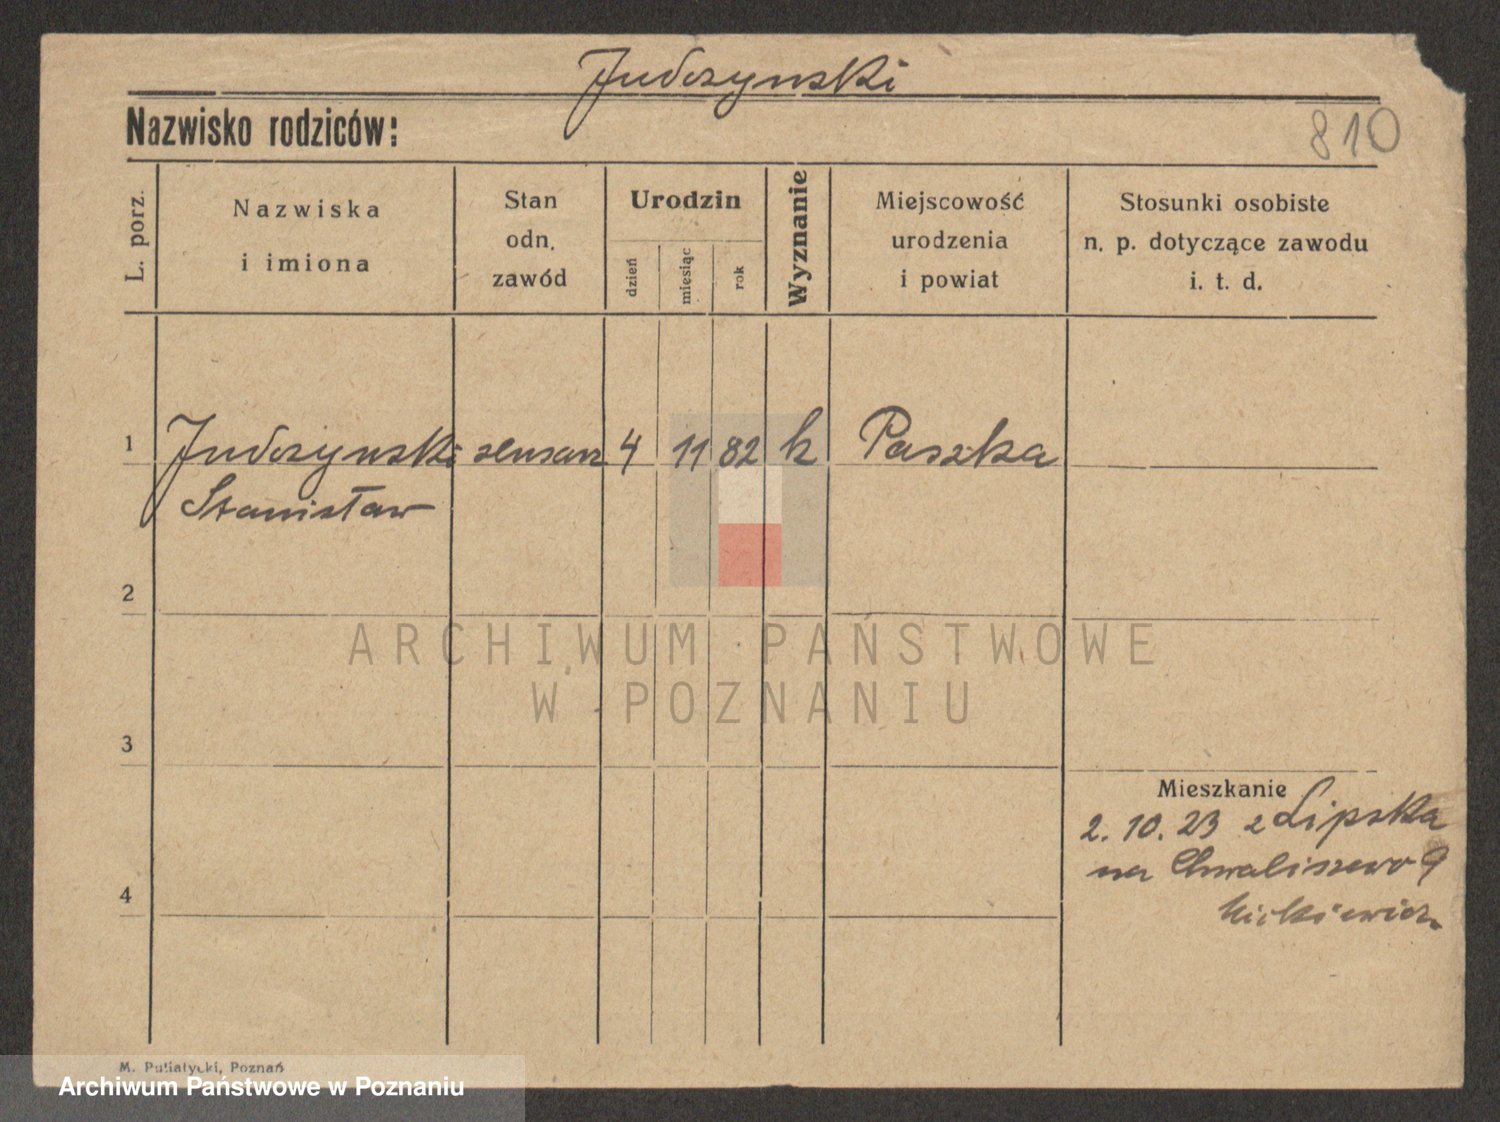 Judczynski
Nazwisko rodziców:
810
L. porz.
Nazwiska
i imiona
Stan
odn.
zawód
Urodzin
dzień
miesiąc
rok
Wyznanie
Miejscowość
urodzenia
i powiat
Stosunki osobiste
n. p. dotyczące zawodu
i. t. d.
1 Judczynski 4 11 82 k Paszka
Stanisław
2
ARCHIWUM PAŃSTWOWE
W POZNANIU
3
Mieszkanie
2. 10. 23 z Lipska
na Chwaliszewo 9
4
M. Putiatycki, Poznań
Archiwum Państwowe w Poznaniu